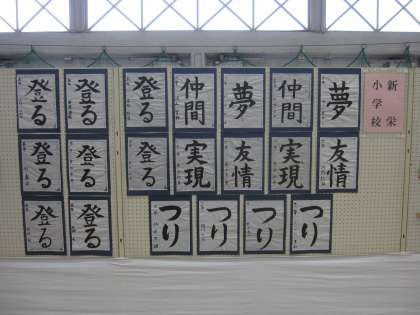 新栄
小学校
夢
仲間
夢
仲間
登る
登る
登る
友情
実現
友情
実現
登る
登る
登る
つり
つり
つり
つり
登る
登る